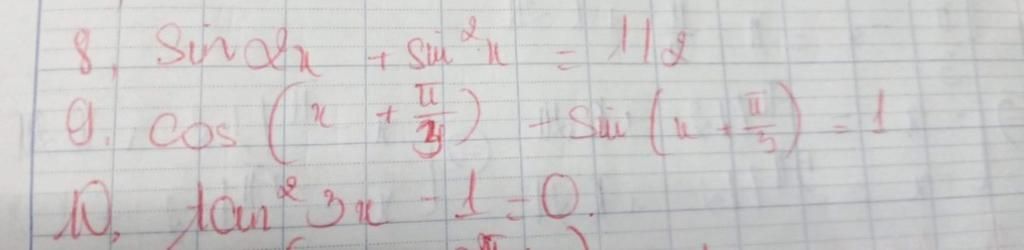 8, sin2x + sin²x = 1/2
9. cos(x + π/3) + sin(x + π/3) = 1
10, tan²3x - 1 = 0.